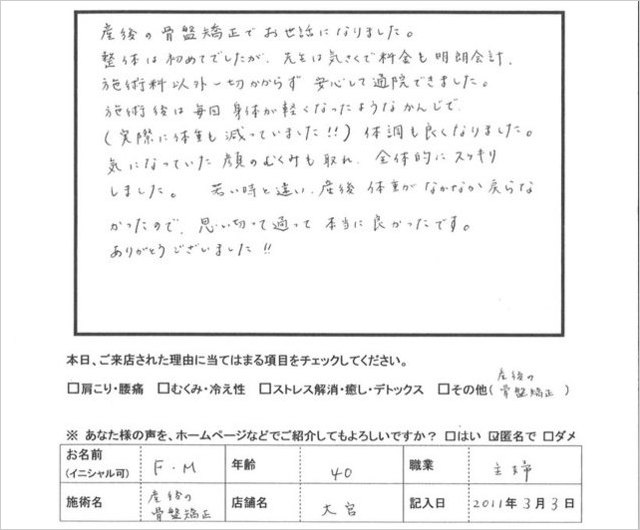 産後の骨盤矯正でお世話になりました。
整体は初めてでしたが、先生は気さくで料金も明朗会計、
施術料以外一切かからず 安心して通院できました。
施術後は毎回 身体が軽くなったようなかんじで、
(実際に体重も減っていました!!) 体調も良くなりました。
気になっていた 顔のむくみも取れ、全体的にスッキリ
しました。 若い時と違い、産後 体重が なかなか戻らな
かったので、思い切って通って 本当に良かったです。
ありがとうございました!!
本日、ご来店された理由に当てはまる項目をチェックしてください。
□肩こり・腰痛 □むくみ・冷え性 □ストレス解消・癒し・デトックス □その他(産後の骨盤矯正)
※ あなた様の声を、ホームページなどでご紹介してもよろしいですか? □はい ☑匿名で □ダメ
お名前(イニシャル可) F・M 年齢 40 職業 主婦
施術名 産後の骨盤矯正 店舗名 大宮 記入日 2011年3月3日